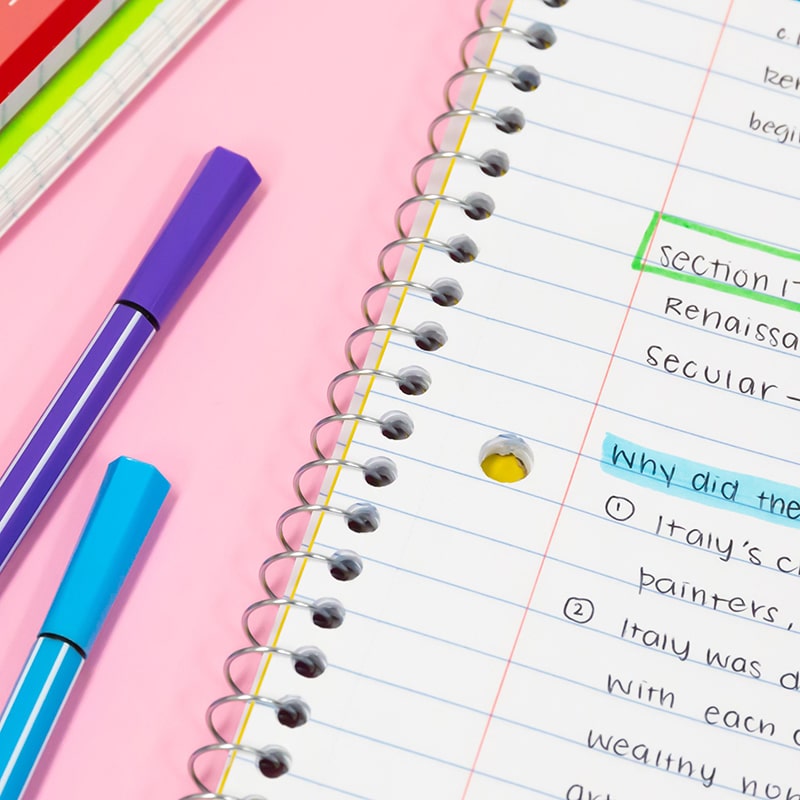 section 1
Renaissa
secular -
Why did the
① Italy's c
painters,
② Italy was d
with each
wealthy non